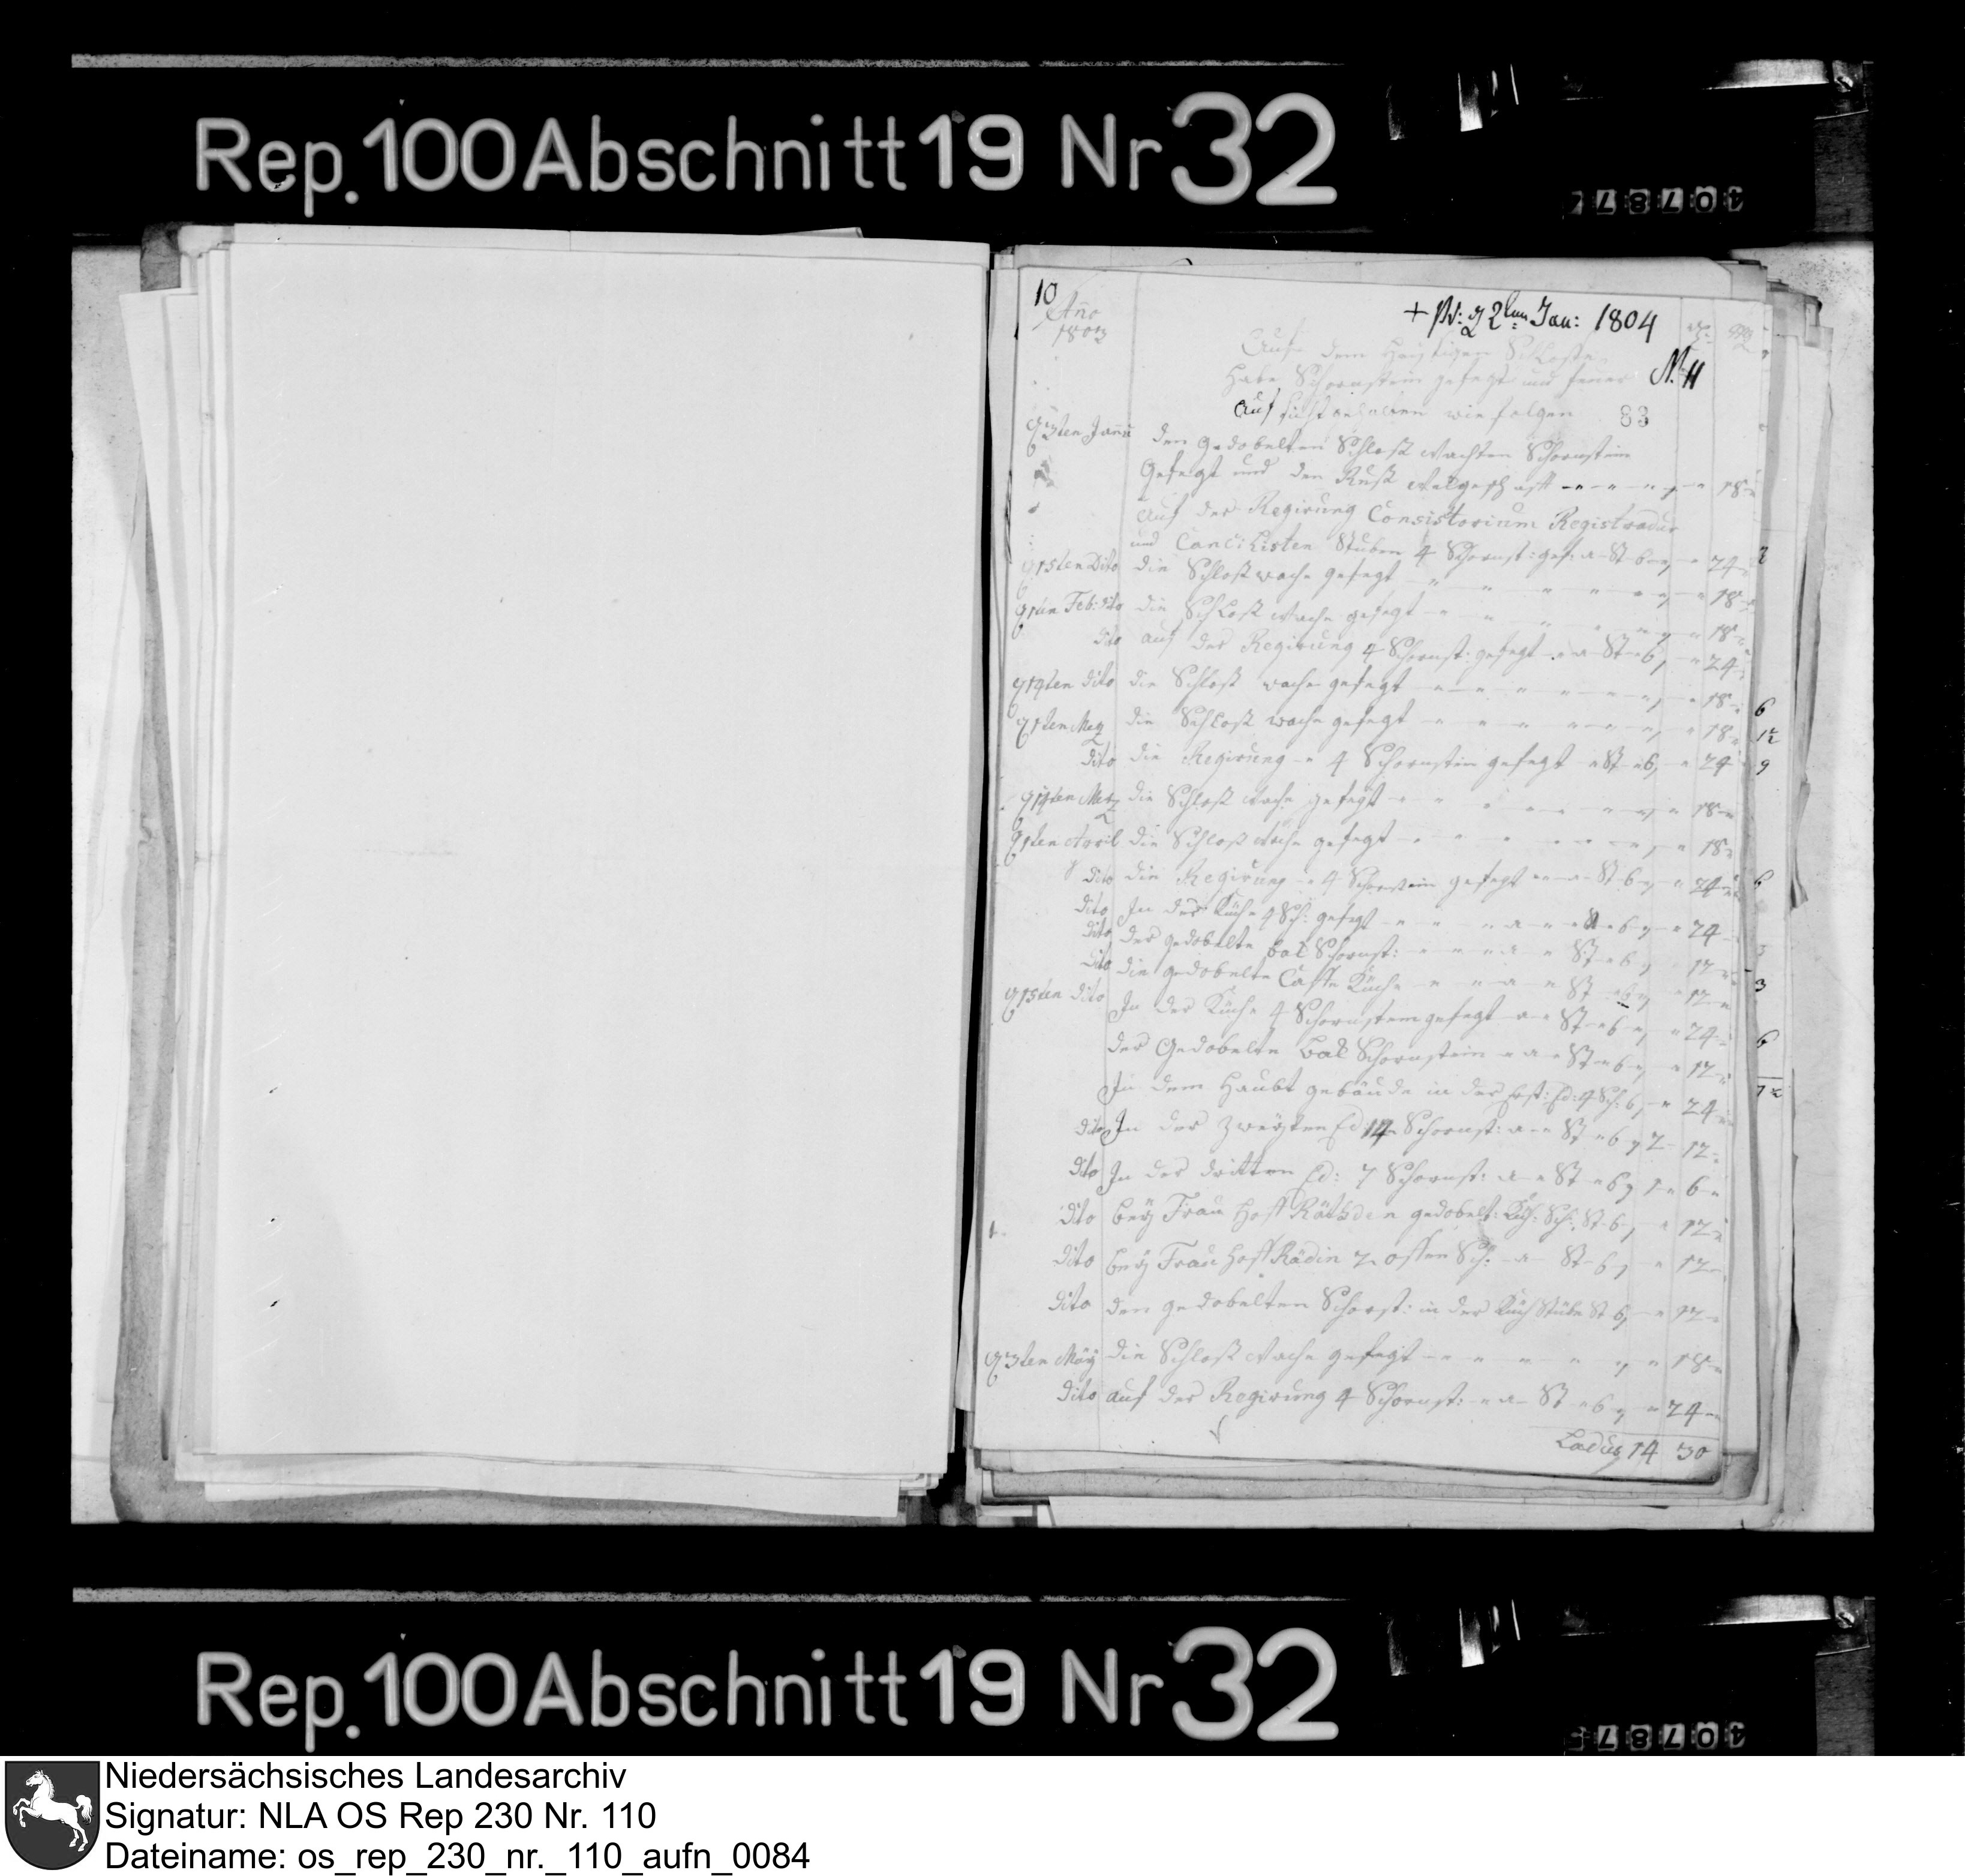 Rep. 100 Abschnitt 19 Nr 32
10
Ano
1803
22 Jan: 1804
Auf dem Hiesigen Schlosse
Habe Schornstein gefegt und feuer
N. 11
auf sicht gehalten wie folgen
83
d 3ten Janu den gedobelten Schloß wachten Schornstein
gefegt und den Ruß 18
auf der Regirung Consistorium Registradur
und Cancilisten Stuben 4 Schornst: gef: a St 6 24
d 15ten Dito die Schloß wache gefegt 18
d 1ten Feb: dito die Schloß wache gefegt 18
dito auf der Regirung 4 Schornst: gefegt a St 6 24
d 19ten dito die Schloß wache gefegt 18
d 1ten Merz die Schloß wache gefegt 18
dito die Regirung 4 Schornstein gefegt a St 6 24
d 14ten Merz die Schloß wache gefegt 18
d 1ten April die Schloß wache gefegt 18
dito die Regirung 4 Schornstein gefegt a St 6 24
dito In der Küche 4 Sch: gefegt a St 6 24
dito der gedobelte bak Schornst: a St 6 12
dito die gedobelte Caffe Küche a St 6 12
d 15ten dito In der Küche 4 Schornstein gefegt a St 6 24
der gedobelte bak Schornstein a St 6 12
In dem Haubt gebäude in der Erst: Ed: 4 Sch: 6 24
dito In der zweyten Ed 14 Schornst: a St 6 2 12
dito In der dritten Ed: 7 Schornst: a St 6 1 6
dito bey Frau Hoff Räthden gedobelt: Küch: Sch: St 6 12
dito bey Frau Hoff Rädin 2 offen Sch: a St 6 12
dito den gedobelten Schorst: in der Küch Stube St 6 12
d 3ten May die Schloß wache gefegt 18
dito auf der Regirung 4 Schornst: a St 6 24
Ladus 14 30
Rep. 100 Abschnitt 19 Nr 32
Niedersächsisches Landesarchiv
Signatur: NLA OS Rep 230 Nr. 110
Dateiname: os_rep_230_nr._110_aufn_0084